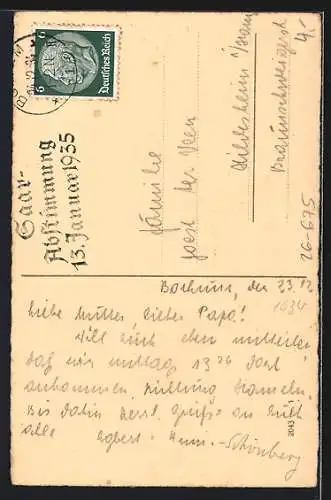 Deutsches Reich
6 6
Saar-
Abstimmung
13. Januar 1935
4.-
Familie
Joest der Veen
Hildesheim
Braunschweigerstr
26-675
Bochum, den 23.12
1934
Liebe Mutter, lieber Papa!
Will Euch eben mitteilen
daß wir mittag 13 26 dort
ankommen, Richtung Hameln.
Bis dahin herzl. Grüße an Euch
alle Egbert
Schönberg
2043